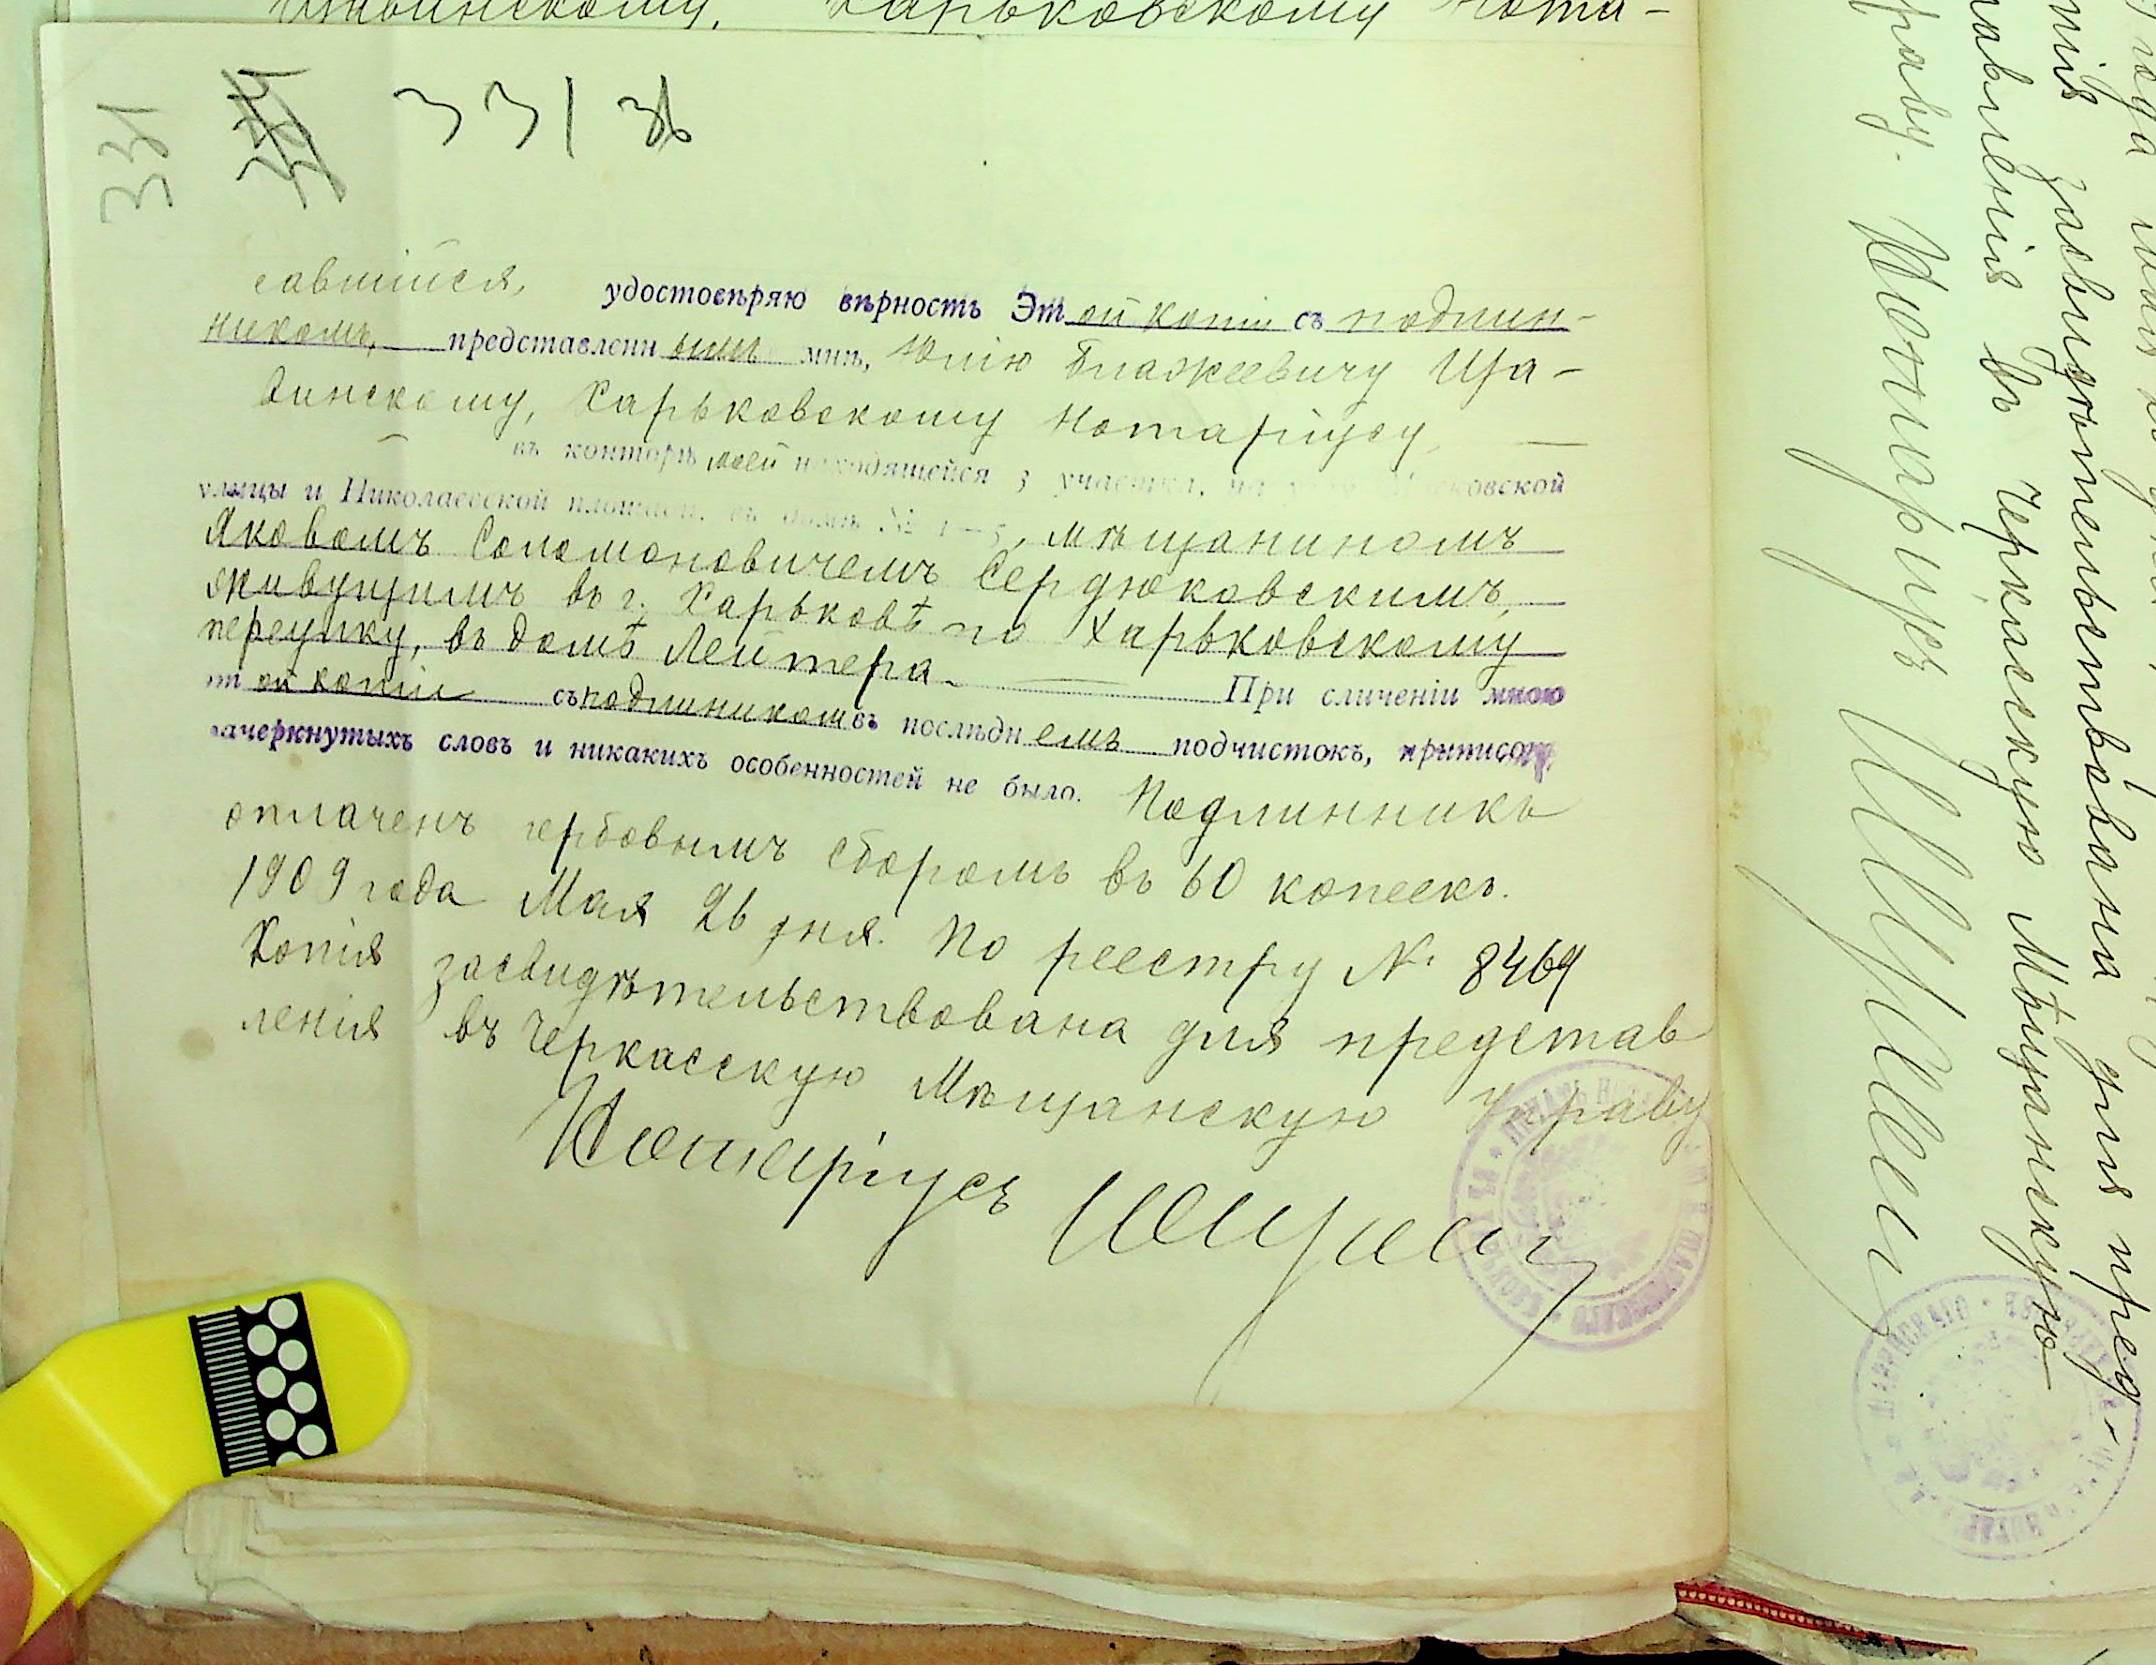 Харьковскому Нота-
331
331 об
савшійся, удостовѣряю вѣрность этой копіи съ подлин-
никомъ, представленнымъ мнѣ, Юлію Блажеевичу Ща-
винскому, Харьковскому Нотаріусу
въ конторѣ моей находящейся 3 участка, на углу Московской
улицы и Николаевской площади, въ домѣ № 1—5, мѣщаниномъ
Яковомъ Соломоновичемъ Сердюковскимъ,
живущимъ въ г. Харьковѣ по Харьковскому
переулку, въ домѣ Лейтера. — При сличеніи мною
этой копіи съ подлинникомъ въ послѣднемъ подчистокъ, приписокъ,
зачеркнутыхъ словъ и никакихъ особенностей не было. Подлинникъ
оплаченъ гербовымъ сборомъ въ 60 копеекъ.
1909 года Мая 26 дня. По реестру № 8469
Копія засвидѣтельствована для представ
ленія въ Черкасскую Мѣщанскую Управу
Нотаріусъ
засвидѣтельствована для пред-
ставленія въ Черкасскую Мѣщанскую
Управу. Нотаріусъ